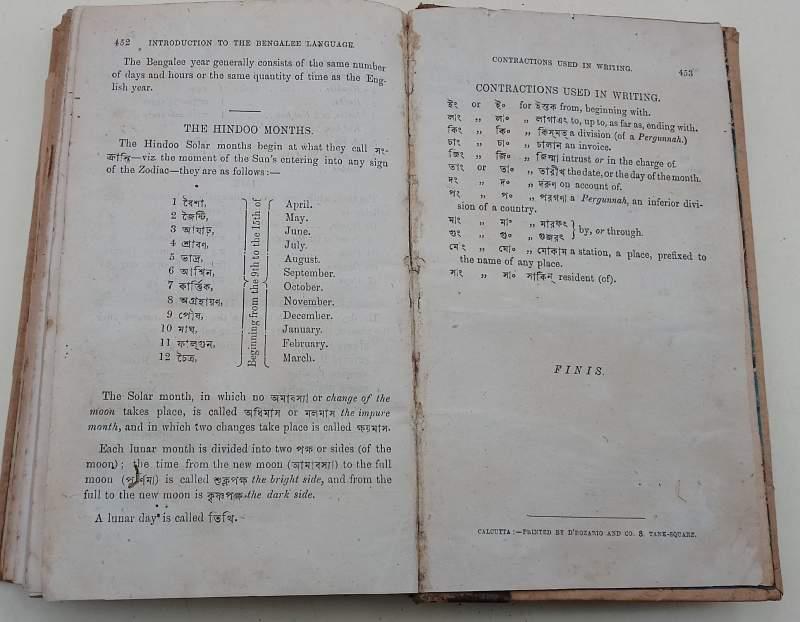 452 INTRODUCTION TO THE BENGALEE LANGUAGE.
The Bengalee year generally consists of the same number
of days and hours or the same quantity of time as the Eng-
lish year.
THE HINDOO MONTHS.
The Hindoo Solar months begin at what they call সং-
ক্রান্তি—viz. the moment of the Sun's entering into any sign
of the Zodiac—they are as follows:—
1 বৈশা, April.
2 জৈষ্টি, May.
3 আষাঢ়, June.
4 শ্রাবণ, July.
5 ভাদ্র, August.
6 আশ্বিন, September.
7 কার্ত্তিক, October.
8 অগ্রহায়ণ, November.
9 পৌষ, December.
10 মাঘ, January.
11 ফাল্গুন, February.
12 চৈত্র, March.
Beginning from the 9th to the 15th of
The Solar month, in which no অমাবস্যা or change of the
moon takes place, is called অধিমাস or মলমাস the impure
month, and in which two changes take place is called ক্ষয়মাস.
Each lunar month is divided into two পক্ষ or sides (of the
moon); the time from the new moon (আমাবস্যা) to the full
moon (পূর্ণিমা) is called শুক্লপক্ষ the bright side, and from the
full to the new moon is কৃষ্ণপক্ষ the dark side.
A lunar day is called তিথি.
CONTRACTIONS USED IN WRITING. 453
CONTRACTIONS USED IN WRITING.
ইং or ই০ for ইস্তক from, beginning with.
লাং „ লা০ „ লাগাএৎ to, up to, as far as, ending with.
কিং „ কি০ „ কিসমত্ a division (of a Pergunnah.)
চাং „ চা০ „ চালান an invoice.
জিং „ জি০ „ জিম্মা intrust or in the charge of.
তাং or তা০ „ তারীখ the date, or the day of the month.
দং „ দ০ „ দরুণ on account of.
পং „ প০ „ পরগণা a Pergunnah, an inferior divi-
sion of a country.
মাং „ মা০ „ মারফৎ } by, or through.
গুং „ গু০ „ গুজরৎ
মোং „ মো০ „ মোকাম a station, a place, prefixed to
the name of any place.
সাং „ সা০ সাকিন্ resident (of).
FINIS.
CALCUTTA:—PRINTED BY D'ROZARIO AND CO. 8, TANK-SQUARE.